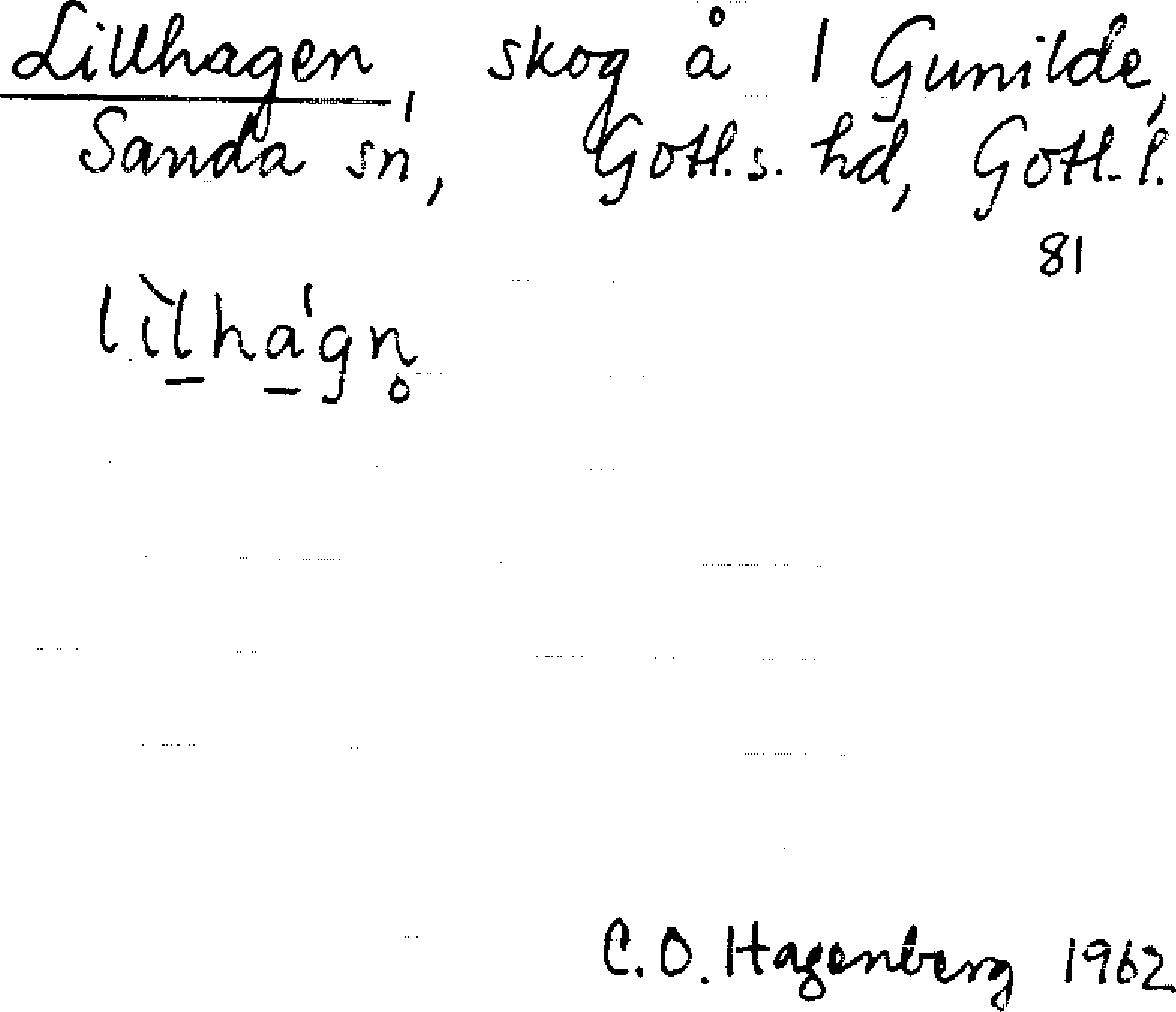 Lillhagen, skog å 1 Gunilde,
Sanda sn, Gotl. s. hd, Gotl. l.
81
lìlhágn̥
C.O. Hagenberg 1962